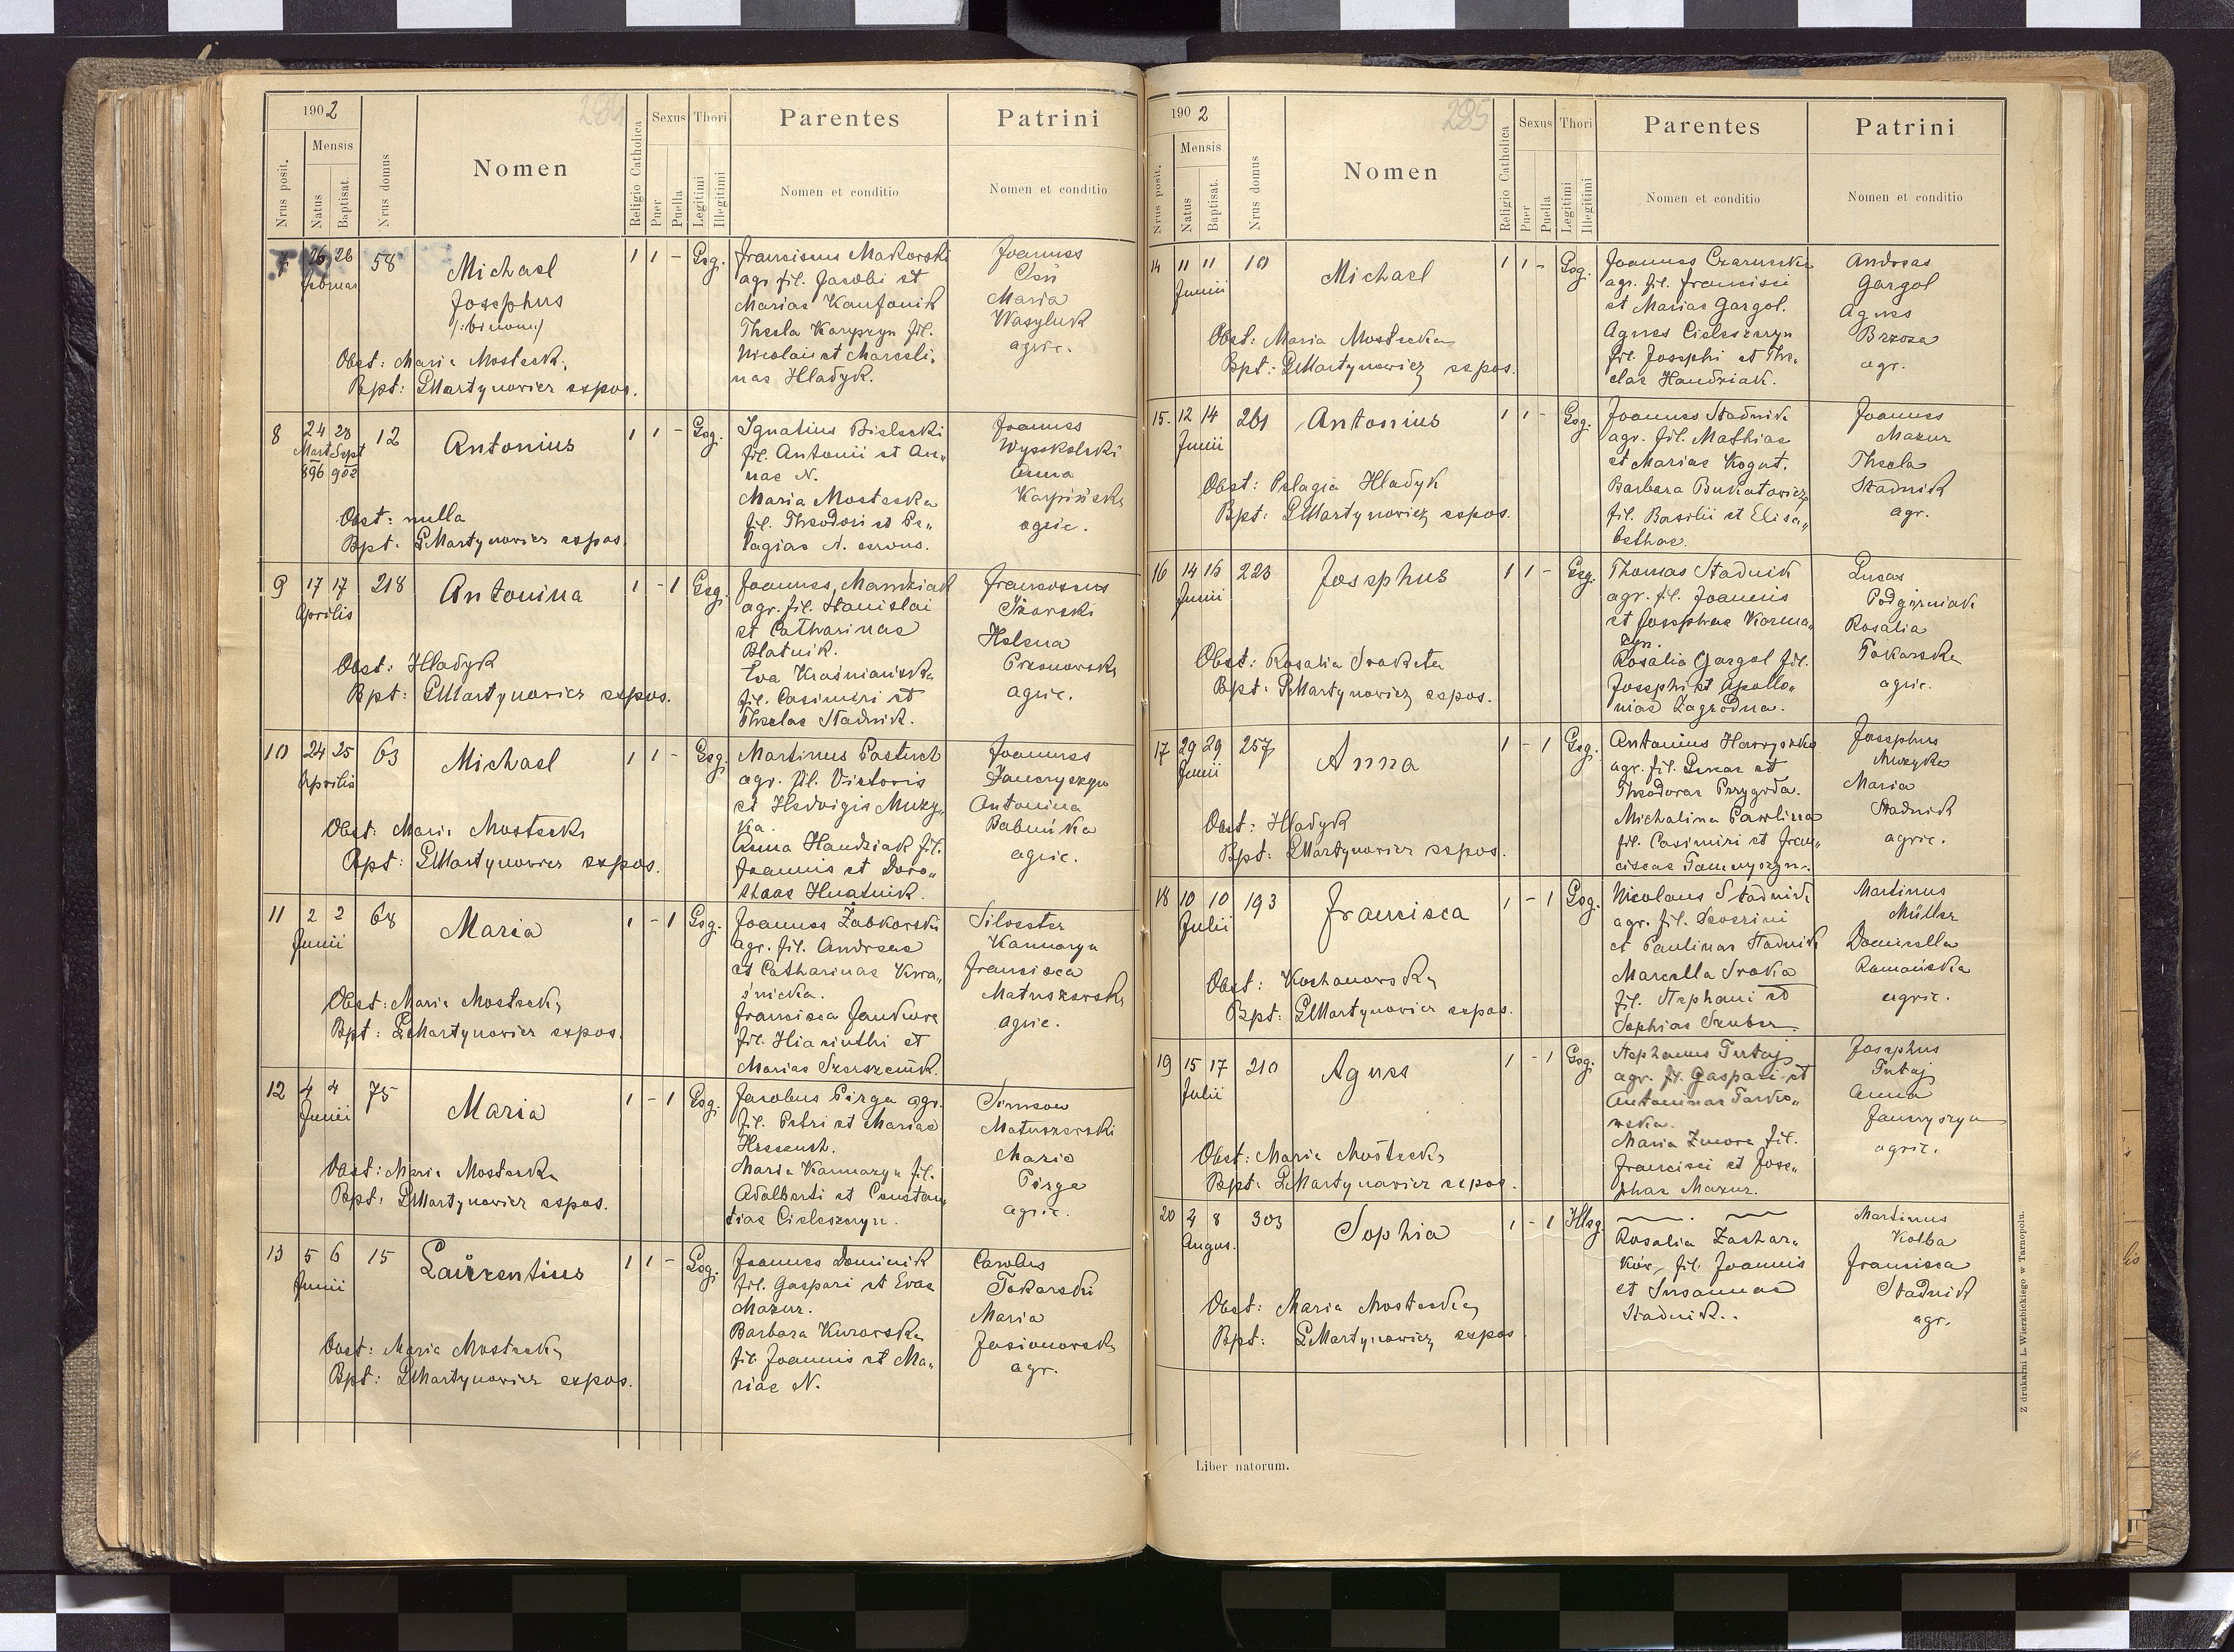 1902
284
Nrus posit.
Mensis
Natus
Baptisat.
Nrus domus
Nomen
Religio Catholica
Sexus
Puer
Puella
Thori
Legitimi
Illegitimi
Parentes
Nomen et conditio
Patrini
Nomen et conditio
7 26 26 58 Michael 1 1 - Leg.
Februar
Josephus
(:binom:)
Obst: Maria Mostecka
Bpt: PMartynowicz expos.
Franciscus Makowski
agr. fil. Jacobi et
Mariae Kanfonik
Thecla Karpszyn fil.
Nicolai et Marceli-
nae Hladyk.
Joannes
Maria
Wasyluk
agric.
8 24 28 12 Antonius 1 1 - Leg.
Mart Sept
896 902
Obst: nulla
Bpt. PMartynowicz expos.
Ignatius Bielecki
fil. Antonii et An-
nae N.
Maria Mostecka
fil. Theodori et Pe-
lagiae N.
Joannes
Anna
Karpińska
agric.
9 17 17 218 Antonina 1 - 1 Leg.
Aprilis
Obst: Hladyk
Bpt: PMartynowicz expos.
Joannes
agr. fil. Stanislai
et Catharinae
Blatnik.
Eva
fil. Casimiri et
Theclae Stadnik.
Franciscus
Helena
agric.
10 24 25 63 Michael 1 1 - Leg.
Aprilis
Obst: Maria Mostecka
Bpt: PMartynowicz expos.
Martinus Pastuch
agr. fil. Victoris
et Hedvigis Muzy-
ka.
Anna Handziak fil.
Joannis et Doro-
theae Hnatnik.
Joannes
Janczyszyn
Antonina
Babińska
agric.
11 2 2 68 Maria 1 - 1 Leg.
Junii
Obst: Maria Mostecka
Bpt: PMartynowicz expos.
Joannes Żabkowski
agr. fil. Andreae
et Catharinae Kwa-
śnicka.
Francisca Jankowa
fil. Hiacinthi et
Mariae
Silvester
Kannazyn
Francisca
Matuszewska
agric.
12 4 4 75 Maria 1 - 1 Leg.
Junii
Obst: Maria Mostecka
Bpt: PMartynowicz expos.
Jacobus Pirga agr.
fil. Petri et Mariae
Maria Kannazyn fil.
Adalberti et Constan-
tiae Cieleszczyn.
Simeon
Matuszewski
Maria
Pirga
agric.
13 5 6 15 Laurentius 1 1 - Leg.
Junii
Obst: Maria Mostecka
Bpt: PMartynowicz expos.
Joannes Dominik
fil. Gaspari et Evae
Mazur.
Barbara Kurowska
fil. Joannis et Ma-
riae N.
Carolus
Tokarski
Maria
Jasionowska
agr.
1902
285
Nrus posit.
Mensis
Natus
Baptisat.
Nrus domus
Nomen
Religio Catholica
Sexus
Puer
Puella
Thori
Legitimi
Illegitimi
Parentes
Nomen et conditio
Patrini
Nomen et conditio
14 11 11 10 Michael 1 1 - Leg.
Junii
Obst: Maria Mostecka
Bpt: PMartynowicz expos.
Joannes Czarnecki
agr. fil. Francisci
et Mariae Gargol.
Agnes Cieleszczyn
fil. Josephi et The-
clae Handziak.
Andreas
Gargol
Agnes
Brzoza
agr.
15. 12 14 261 Antonius 1 1 - Leg.
Junii
Obst: Pelagia Hladyk
Bpt: PMartynowicz expos.
Joannes Stadnik
agr. fil. Mathiae
et Mariae Kogut.
Barbara Bukatowicz
fil. Basilii et Elisa-
bethae.
Joannes
Mazur
Thecla
Stadnik
agr.
16 14 16 223 Josephus 1 1 - Leg.
Junii
Obst: Rosalia Sroketa
Bpt: PMartynowicz expos.
Thomas Stadnik
agr. fil. Joannis
et Josephae Karma-
zyn.
Rosalia Gargol fil.
Josephi et Apollo-
niae Zagrodna.
Lucas
Podgórniak
Rosalia
Tokarska
agric.
17 29 29 257 Anna 1 - 1 Leg.
Junii
Obst: Hladyk
Bpt: PMartynowicz expos.
Antonius Hawryszko
agr. fil. Lucae et
Theodorae Przygoda.
Michalina Pawlina
fil. Casimiri et Fran-
ciscae
Josephus
Muzyka
Maria
Stadnik
agric.
18 10 10 193 Francisca 1 - 1 Leg.
Julii
Obst: Kochanowska
Bpt: PMartynowicz expos.
Nicolaus Stadnik
agr. fil. Severini
et Paulinae Stadnik
Marcella Sroka
fil. Stephani et
Sophiae Szuber.
Martinus
Müller
Domicella
Romańska
agric.
19 15 17 210 Agnes 1 - 1 Leg.
Julii
Obst: Maria Mostecka
Bpt: PMartynowicz expos.
Stephanus Tutaj
agr. fil. Gaspari et
Antoninae Tarko-
wska.
Maria Zmora fil.
Francisci et Jose-
phae Mazur.
Josephus
Tutaj
Anna
Janczyszyn
agric.
20 4 8 303 Sophia 1 - 1 Illeg.
Augus.
Obst: Maria Mostecka
Bpt: PMartynowicz expos.
Rosalia Zachar-
ków, fil. Joannis
et Susannae
Stadnik.
Martinus
Kolba
Francisca
Stadnik
agr.
Liber natorum.
Z drukarni L. Wierzbickiego w Tarnopolu.